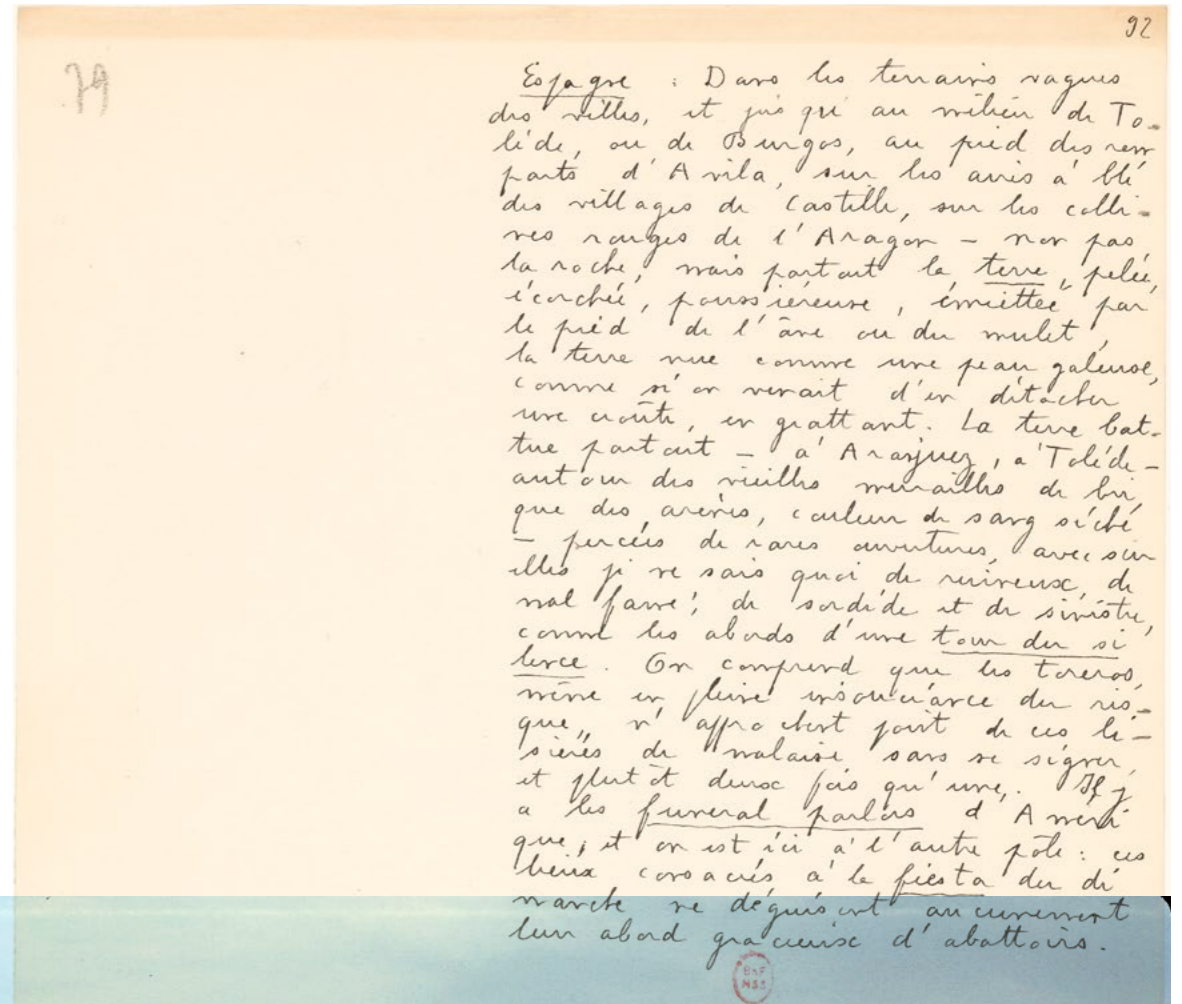 92
Espagne : Dans les terrains vagues
des villes, et jusqu'au milieu de To-
lède, ou de Burgos, au pied des rem
parts d'Avila, sur les aires à blé
des villages de Castille, sur les colli-
nes rouges de l'Aragon – non pas
la roche, mais partout la terre, pelée,
écorchée, poussiéreuse, émiettée par
le pied de l'âne ou du mulet,
la terre nue comme une peau galeuse,
comme si on venait d'en détacher
une croûte, en grattant. La terre bat-
tue partout – à Aranjuez, à Tolède –
autour des vieilles murailles de bri
que des arènes, couleur de sang séché
– percées de rares ouvertures, avec sur
elles je ne sais quoi de ruineux, de
mal famé, de sordide et de sinistre,
comme les abords d'une tour du si
lence. On comprend que les toreros,
même en pleine insouciance du ris-
que, n'approchent point de ces li-
sières de malaise sans se signer,
et plutôt deux fois qu'une. Il y
a les funeral parlors d'Améri
que, et on est ici à l'autre pôle : ces
lieux consacrés à la fiesta du di
manche ne déguisent aucunement
leur abord gracieux d'abattoirs.
BnF
MSS